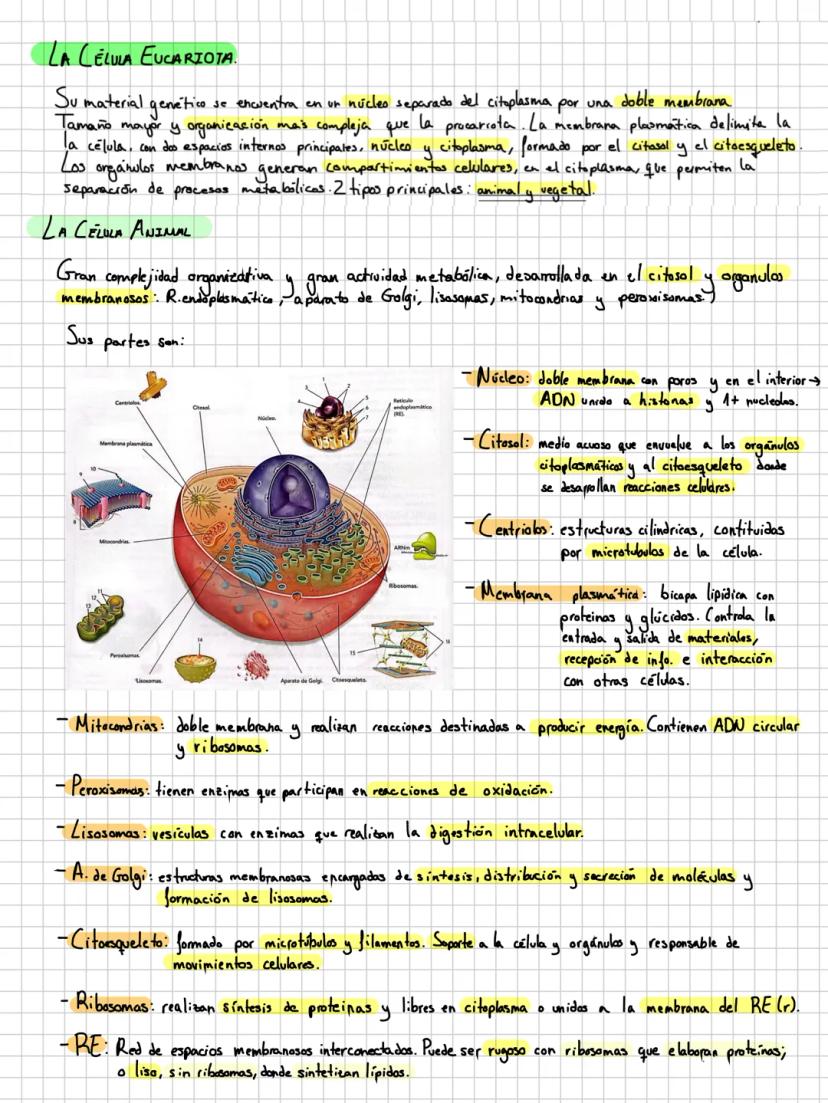 LA CÉLULA EUCARIOTA.
Su material genético se encuentra en un núcleo separado del citoplasma por una doble membrana
Tamaño mayor y organización mas compleja que la procariota. La membrana plasmática delimita la
la célula, con dos espacios internos principales, núcleo y citoplasma, formado por el citosol y el citoesqueleto.
Los orgánulos membranos generan compartimientos celulares, en el citoplasma, que permiten la
separación de procesos metabólicos. 2 tipos principales: animal y vegetal.
LA CÉLULA ANIMAL
Gran complejidad organizativa y gran actividad metabólica, desarrollada en el citosol y organulos
membranosos: R.endoplasmático, aparato de Golgi, lisosomas, mitocondrias y peroxisomas.)
Sus partes son:
Centriolos.
Citosol.
Núcleo.
1
2
3
4
5
6
7
Retículo
endoplasmático
(RE).
Membrana plasmática.
9
10
8
Mitocondrias.
ARNm
Ribosomas.
11
12
13
14
15
16
Peroxisomas.
Lisosomas.
Aparato de Golgi.
Citoesqueleto.
- Núcleo: doble membrana con poros y en el interior →
ADN unido a histonas y 1+ nucleolos.
- Citosol: medio acuoso que envuelve a los orgánulos
citoplasmáticos y al citoesqueleto donde
se desarrollan reacciones celulares.
- Centriolos: estructuras cilíndricas, contituidas
por microtubulos de la célula.
- Membrana plasmática: bicapa lipídica con
proteinas y glúcidos. Controla la
entrada y salida de materiales,
recepción de info. e interacción
con otras células.
- Mitocondrias: doble membrana y realizan reacciones destinadas a producir energía. Contienen ADN circular
y ribosomas.
- Peroxisomas: tienen enzimas que participan en reacciones de oxidación.
- Lisosomas: vesículas con enzimas que realizan la digestión intracelular.
- A. de Golgi: estructuras membranosas encargadas de síntesis, distribución y secreción de moléculas y
formación de lisosomas.
- Citoesqueleto: formado por microtúbulos y filamentos. Soporte a la célula y orgánulos y responsable de
movimientos celulares.
- Ribosomas: realizan síntesis de proteinas y libres en citoplasma o unidos a la membrana del RE (r).
- RE: Red de espacios membranosos interconectados. Puede ser rugoso con ribosomas que elaboran proteínas;
o liso, sin ribosomas, donde sintetizan lípidos.